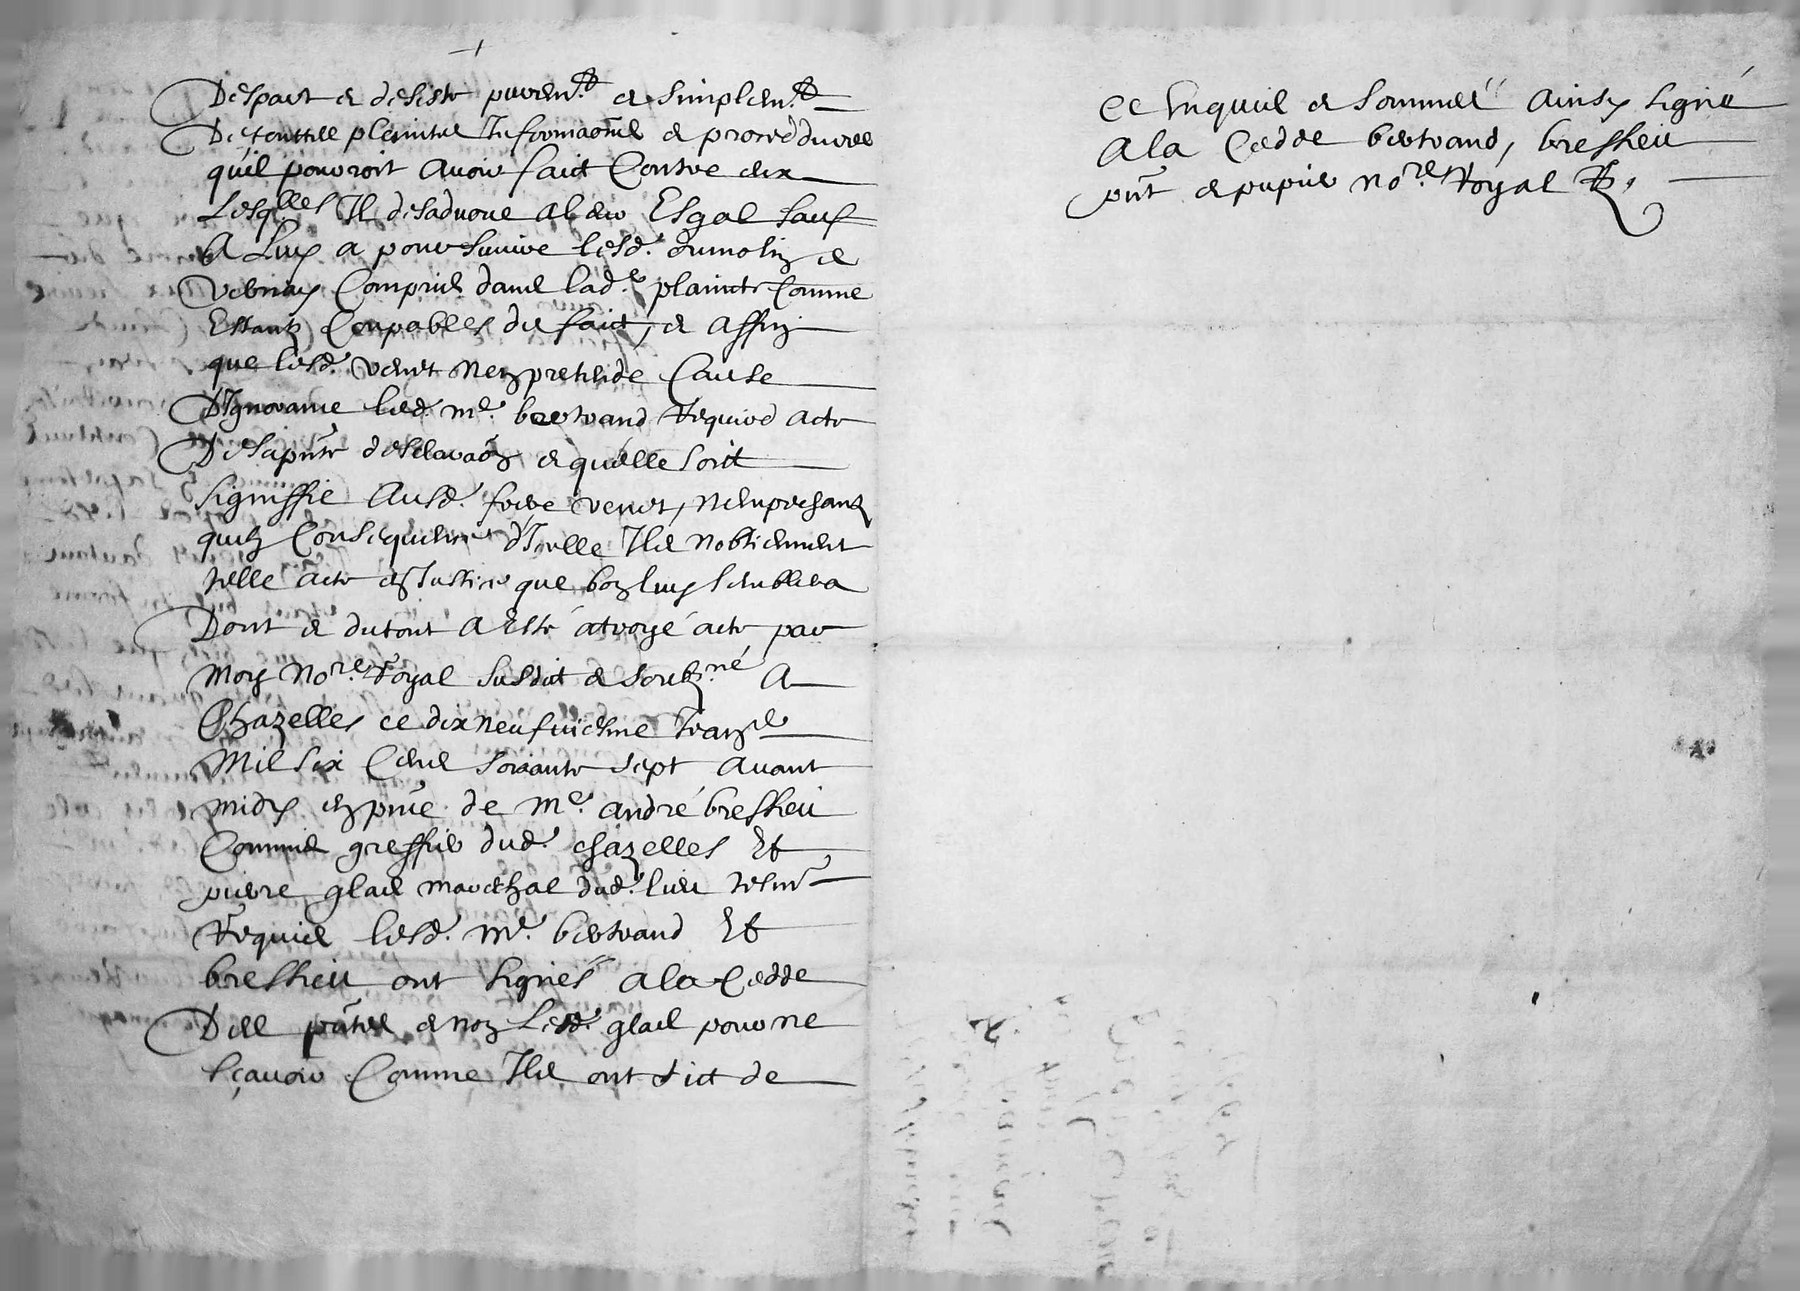 Despart et desiste purem.t et simplem.t
De touttes plaintes Informaõns et proceddures
quil pourroit avoir faict Contre eux
Lesq.lles Il desadvoue a leur Esgal sauf
A Luy a poursuivre lesd. dumolin et
vernay Compris dans lad.e plaincte Comme
Estantz Coupables du faict, et affin
que lesd. venet nen pretende Cause
D'Ignorance led. m.e bertrand Requiert acte
De sa pñte desclaraõn et quelle soit
signiffie Ausd. frere venet, nempeschant
quen Consequence d'Icelle Ilz nobtiennent
telle acte en Justice que bon luy semblera
Dont et du tout a Esté atroyé acte par
moy No.re Royal susdit et soubz.né A
Chazelles ce dixneufviesme Mars
Mil six Cens soixante sept avant
midy en pñce de M.e andré bressieu
Commis greffier dud. chazelles Et
pierre glas mareschal dud. lieu tesm̃
Requis lesd. M.e bertrand Et
bressieu ont signés a la Cedde
Des pñtes et non Led. glas pour ne
sçavoir Comme Ilz ont dict de
ce Enquis et sommés Ainsy signé
A la Cedde bertrand, bressieu
pñt et pupier No.re Royal